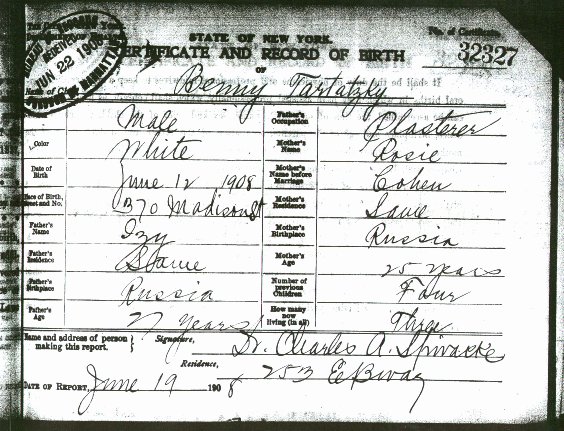 STATE OF NEW YORK.
No. of Certificate
CERTIFICATE AND RECORD OF BIRTH
32327
JUN 22 1908
BOROUGH OF MANHATTAN
OF
Benny Tartatzky
Male
Father's Occupation
Plasterer
Color
White
Mother's Name
Rosie
Date of Birth
June 12 1908
Mother's Name before Marriage
Cohen
Place of Birth, Street and No.
370 Madison St
Mother's Residence
Same
Father's Name
Izy
Mother's Birthplace
Russia
Father's Residence
Same
Mother's Age
25 years
Father's Birthplace
Russia
Number of previous Children
Four
Father's Age
27 years
How many now living (in all)
Three
Name and address of person making this report.
Signature,
Dr. Charles A. Spivacke
Residence,
253 E Bway
DATE OF REPORT, June 19 1908